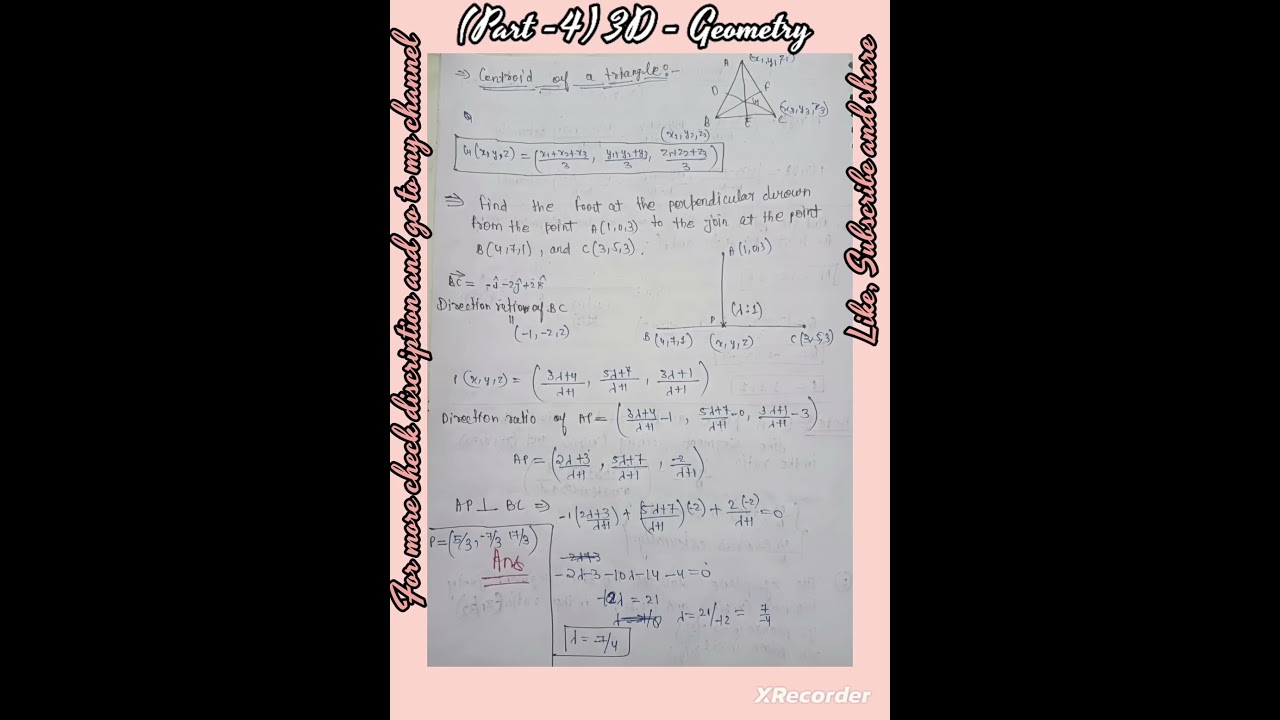 (Part -4) 3D - Geometry
For more check discription and go to my channel
Like, Subscribe and share
⇒ Centroid of a triangle:-
A (x₁,y₁,z₁)
D F
G
B E C (x₃,y₃,z₃)
(x₂,y₂,z₂)
G(x,y,z) = (x₁+x₂+x₃/3, y₁+y₂+y₃/3, z₁+z₂+z₃/3)
⇒ Find the foot at the perpendicular drown
from the point A(1,0,3) to the join at the point
B(4,7,1), and C(3,5,3).
A(1,0,3)
BC = -î-2ĵ+2k̂
Direction ration of BC
"
(-1,-2,2)
P (λ:1)
B(4,7,1) (x,y,z) C(3,5,3)
P(x,y,z) = (3λ+4/λ+1, 5λ+7/λ+1, 3λ+1/λ+1)
Direction ratio of AP = (3λ+4/λ+1 -1, 5λ+7/λ+1 -0, 3λ+1/λ+1 -3)
AP = (2λ+3/λ+1, 5λ+7/λ+1, -2/λ+1)
AP ⊥ BC ⇒ -1(2λ+3/λ+1) + (5λ+7/λ+1)(-2) + 2(-2)/λ+1 = 0
-2λ-3-10λ-14-4=0
-12λ = 21
λ=21/-12 = 7/-4
λ = -7/4
P=(5/3, -7/3 17/3)
Ans
XRecorder